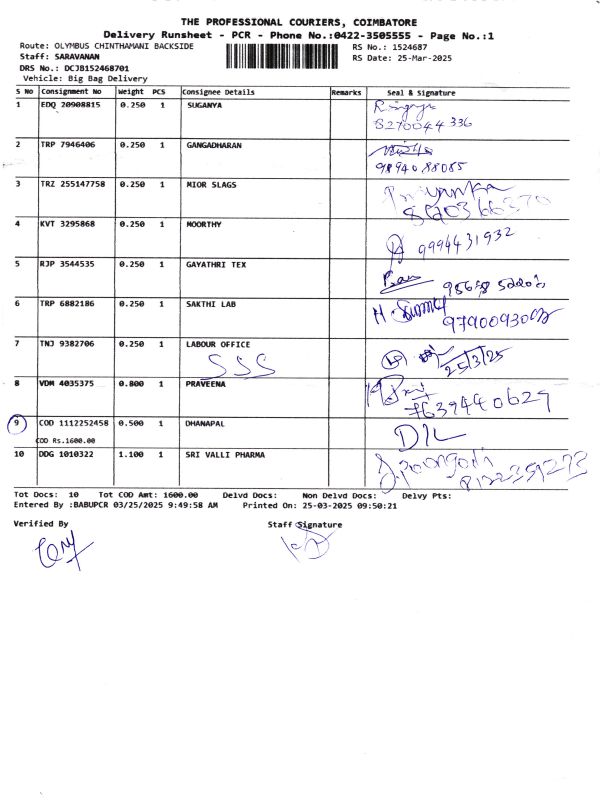 THE PROFESSIONAL COURIERS, COIMBATORE
Delivery Runsheet - PCR - Phone No.:0422-3505555 - Page No.:1
Route: OLYMBUS CHINTHAMANI BACKSIDE RS No.: 1524687
Staff: SARAVANAN RS Date: 25-Mar-2025
DRS No.: DCJB152468701
Vehicle: Big Bag Delivery
S No Consignment No Weight PCS Consignee Details Remarks Seal & Signature
1 EDQ 20908815 0.250 1 SUGANYA
8270044336
2 TRP 7946406 0.250 1 GANGADHARAN
9894088085
3 TRZ 255147758 0.250 1 MIOR SLAGS Priyanka
4 KVT 3295868 0.250 1 MOORTHY
9994431932
5 RJP 3544535 0.250 1 GAYATHRI TEX
6 TRP 6882186 0.250 1 SAKTHI LAB
7 TNJ 9382706 0.250 1 LABOUR OFFICE
SSS 25/3/25
8 VDM 4035375 0.800 1 PRAVEENA
7639440629
9 COD 1112252458 0.500 1 DHANAPAL
COD Rs.1600.00 D/L
10 DDG 1010322 1.100 1 SRI VALLI PHARMA
Tot Docs: 10 Tot COD Amt: 1600.00 Delvd Docs: Non Delvd Docs: Delvy Pts:
Entered By :BABUPCR 03/25/2025 9:49:58 AM Printed On: 25-03-2025 09:50:21
Verified By Staff Signature